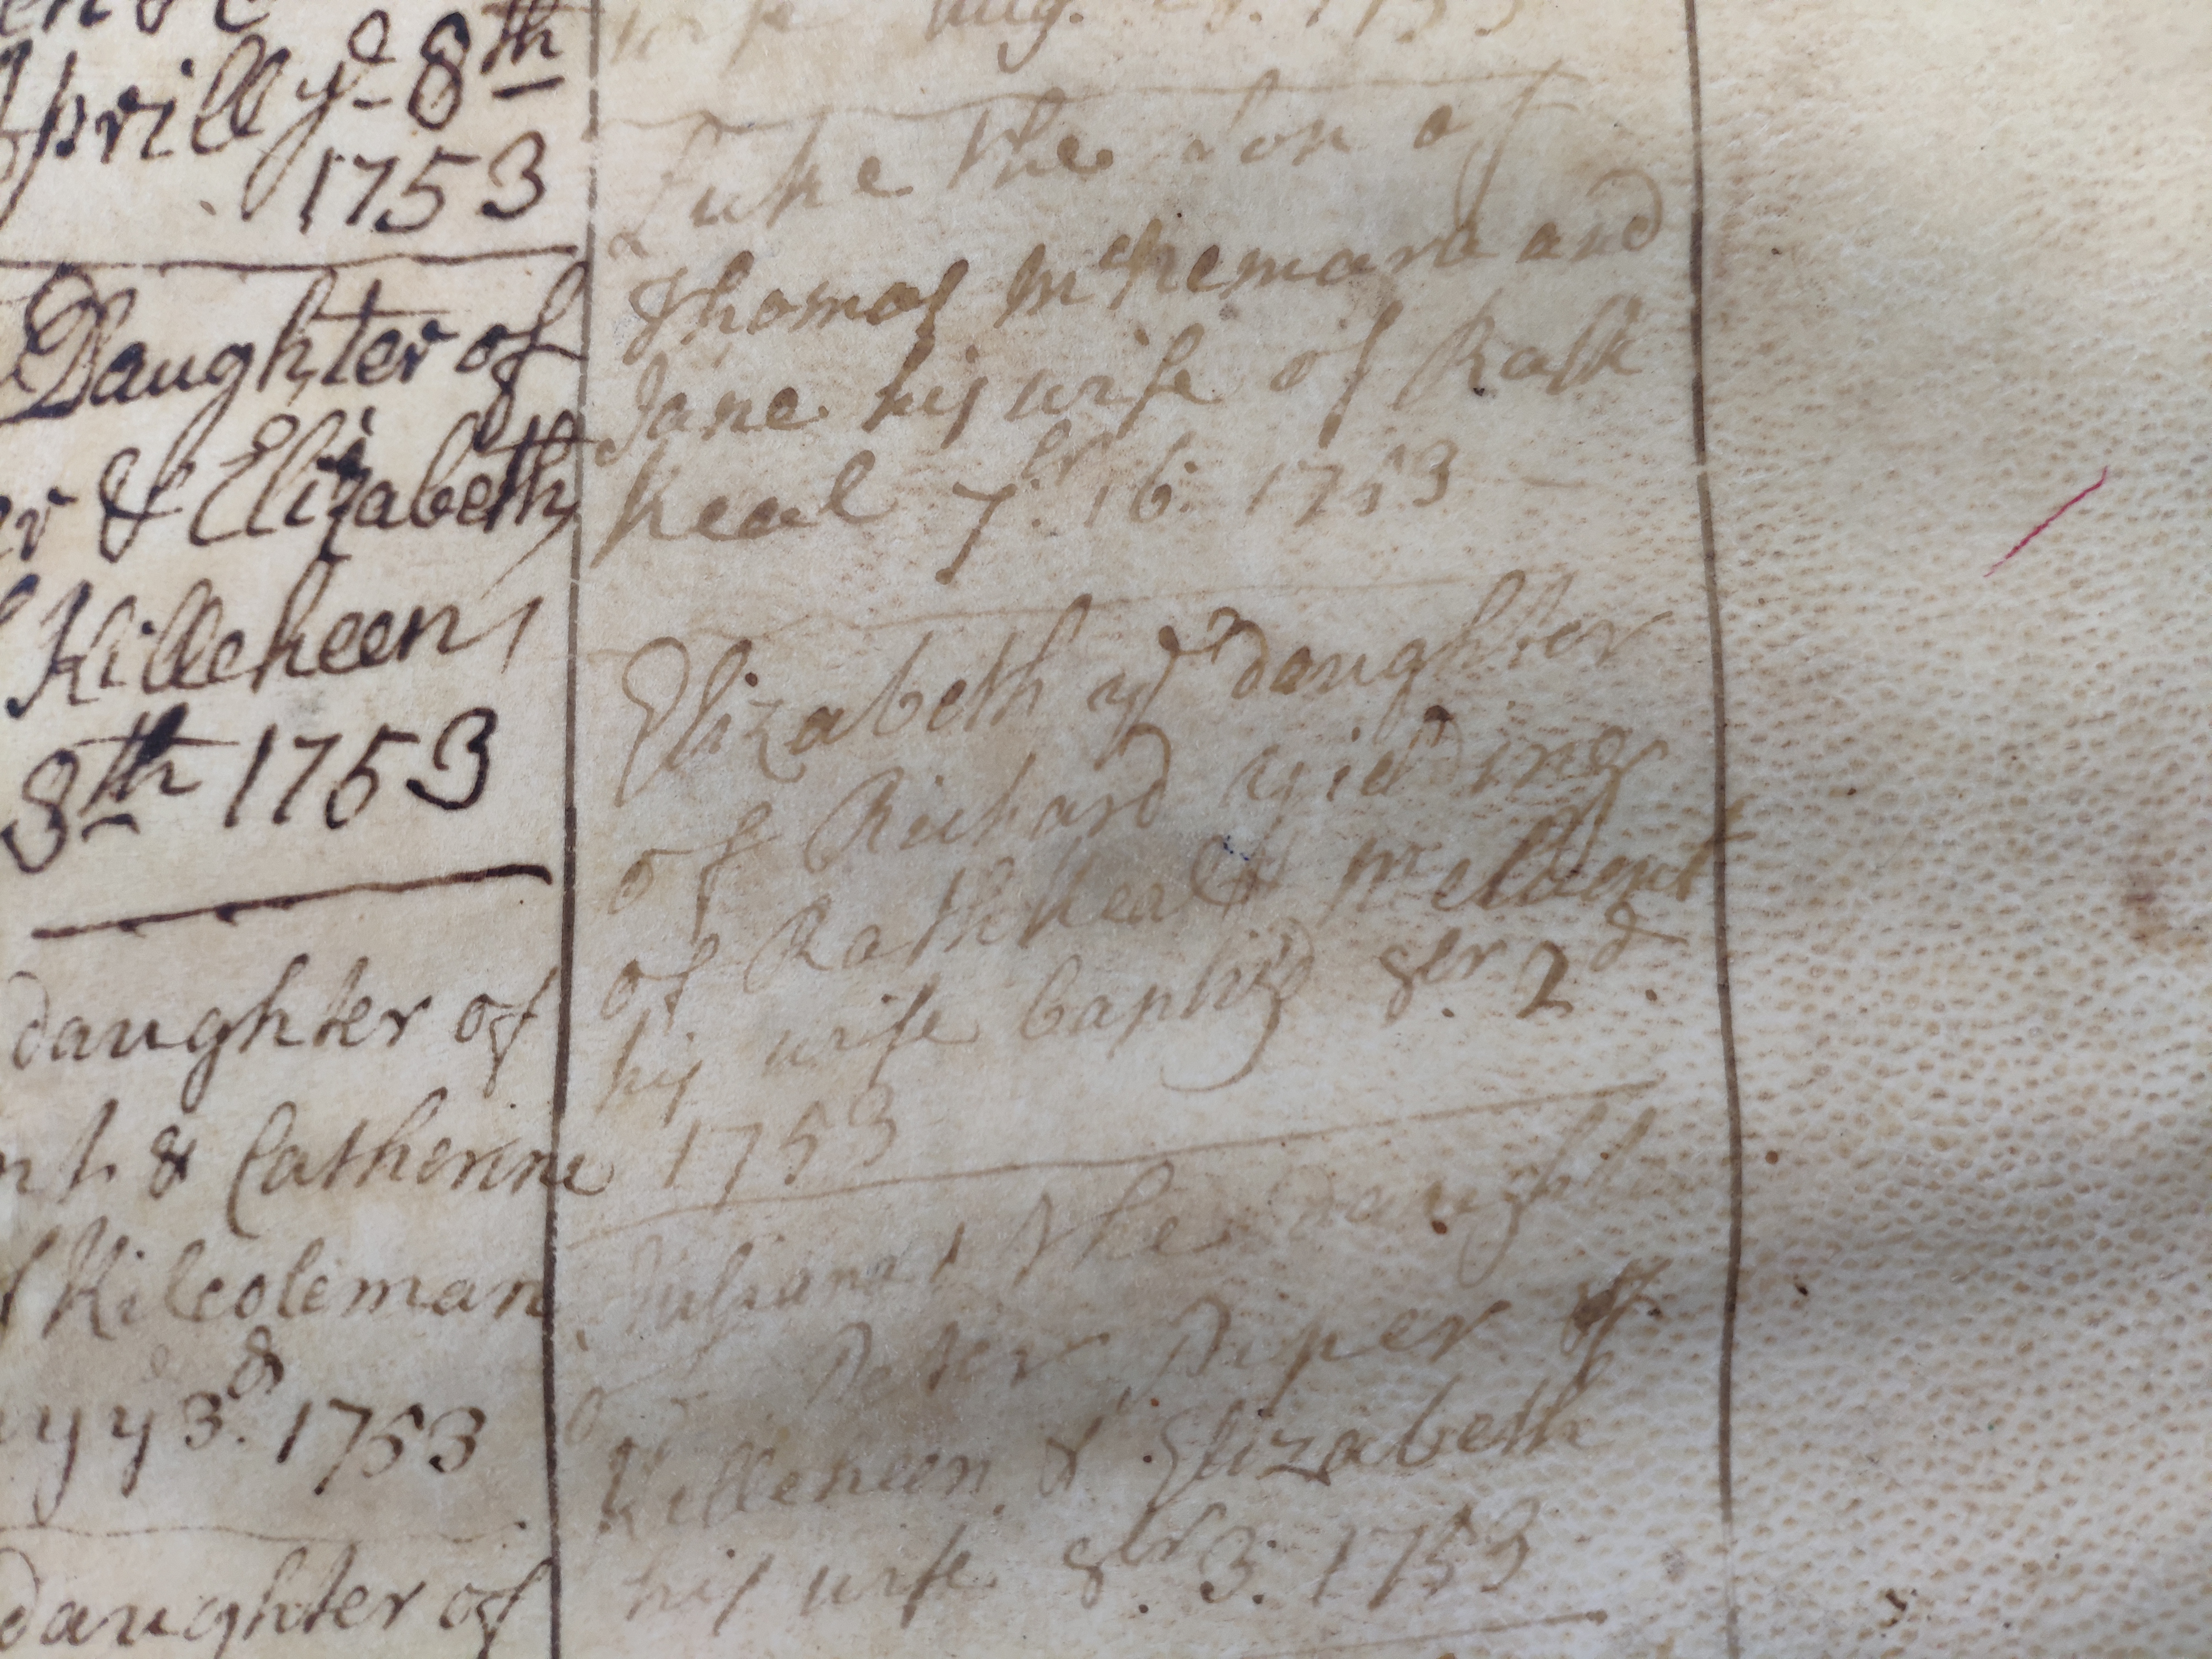 Aprill yᵉ 8th
1753
Daughter of
er & Elizabeth
Killeheen
8th 1753
daughter of
& Catherine
f Kilcoleman
y 3d. 1753
daughter of
wife Aug.
Luke the Son of
Thomas McNemara and
Jane his wife of Rath
keal 7br. 16. 1753
Elizabeth ye daughter
of Richard Yielding
of Rathkeal
his wife baptiz'd 8br. 2d.
1753
Juliana the daughter
of Peter Piper of
Killeheen & Elizabeth
his wife 8br. 3. 1753